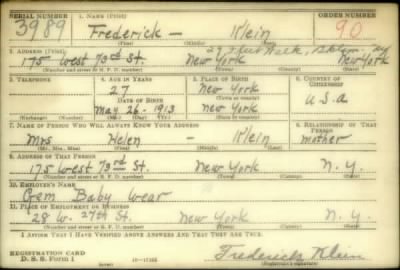 SERIAL NUMBER 1. NAME (PRINT) ORDER NUMBER
3989 Frederick — Klein 90
(First) (Middle) (Last)
2. ADDRESS (PRINT)
175 West 73rd St. New York New York
(Number and street or R. F. D. number) (Town) (County) (State)
3. TELEPHONE 4. AGE IN YEARS 5. PLACE OF BIRTH 6. COUNTRY OF CITIZENSHIP
27 New York
DATE OF BIRTH
May 26 - 1913 New York U.S.A
(Exchange) (Number) (Mo.) (Day) (Yr.) (State or country)
7. NAME OF PERSON WHO WILL ALWAYS KNOW YOUR ADDRESS 8. RELATIONSHIP OF THAT PERSON
Mrs Helen — Klein mother
(Mr., Mrs., Miss) (First) (Middle) (Last)
9. ADDRESS OF THAT PERSON
175 West 73rd St. New York N.Y.
(Number and street or R. F. D. number) (Town) (County) (State)
10. EMPLOYER'S NAME
Gem Baby Wear
11. PLACE OF EMPLOYMENT OR BUSINESS
28 W. 27th St. New York N.Y.
(Number and street or R. F. D. number) (Town) (County) (State)
I AFFIRM THAT I HAVE VERIFIED ABOVE ANSWERS AND THAT THEY ARE TRUE.
REGISTRATION CARD
D. S. S. Form 1 Frederick Klein
(Registrant's signature)